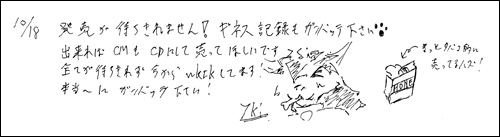 10/18
発売が待ちきれません!ギネス記録もガンバッテ下さい
出来ればCMもCDにして売ってほしいです
全てが待ちきれず今からwktkしてます!
本当〜にガンバッテ下さい!
きっとタバコ前に
売ってるハズ!
HOPE